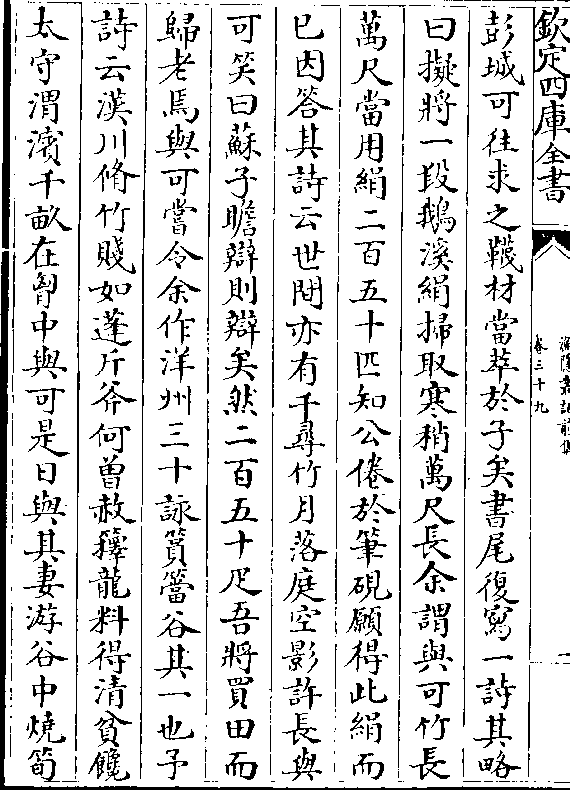 欽定四庫全書
漁隱叢話前集
卷三十九
一
彭城可往求之韈材當萃於子矣書尾復寫一詩其略
曰擬將一段鵝溪絹掃取寒稍萬尺長余謂與可竹長
萬尺當用絹二百五十匹知公倦於筆硯願得此絹而
已因答其詩云世間亦有千尋竹月落庭空影許長與
可笑曰蘇子瞻辯則辯矣然二百五十疋吾將買田而
歸老焉與可嘗令余作洋州三十詠篔簹谷其一也予
詩云漢川脩竹賤如蓬斤斧何曾赦籜龍料得清貧饞
太守渭濱千畝在胷中與可是日與其妻游谷中燒筍